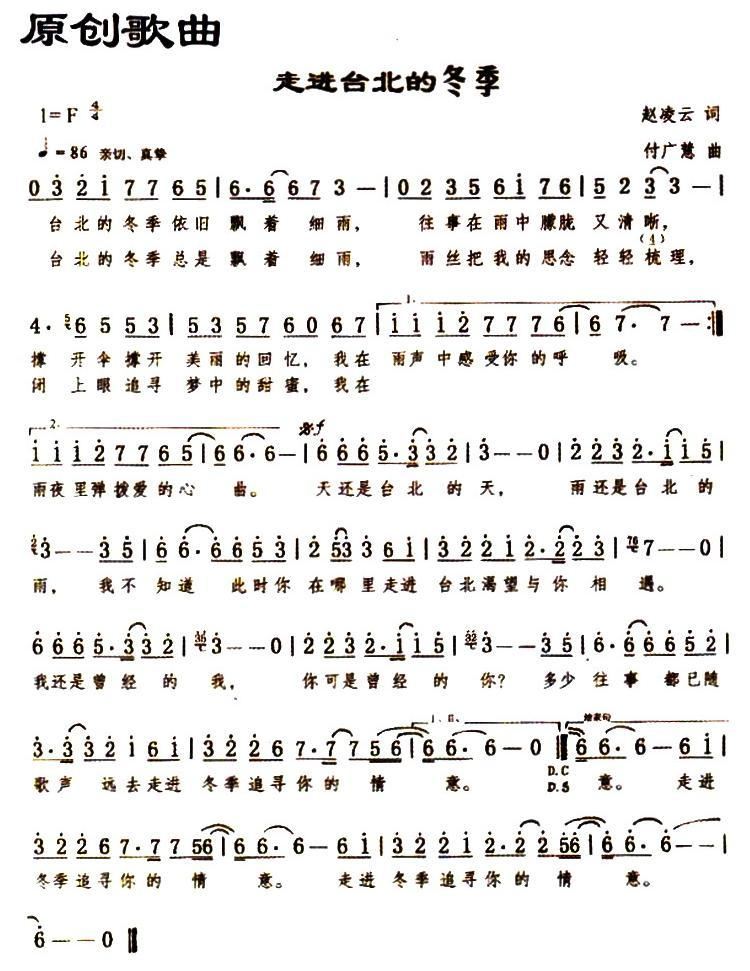 原创歌曲
走进台北的冬季
1=F 4/4
赵凌云 词
♩=86 亲切、真挚
付广慧 曲
0 3 2 1 7 7 6 5 | 6· 6 6 7 3 — | 0 2 3 5 6 1 7 6 | 5 2 3 3 — |
台北的冬季依旧飘着细雨， 往事在雨中朦胧又清晰，
(4)
台北的冬季总是飘着细雨， 雨丝把我的思念轻轻梳理，
1.
4· 5 6 5 5 3 | 5 3 5 7 6 0 6 7 | 1 1 1 2 7 7 7 6 | 6 7· 7 — :||
撑开伞撑开美丽的回忆，我在雨声中感受你的呼吸。
闭上眼追寻梦中的甜蜜，我在
2. f
1 1 1 2 7 7 6 5 | 6 6· 6 — | 6 6 6 5· 3 3 2 | 3 — — 0 | 2 2 3 2· 1 1 5 |
雨夜里弹拨爱的心曲。 天还是台北的天， 雨还是台北的
3 — — 3 5 | 6 6· 6 6 5 3 | 2 5 3 3 6 1 | 3 2 2 1 2· 2 2 3 | 7 — — 0 |
雨， 我不知道此时你在哪里走进台北渴望与你相遇。
6 6 6 5· 3 3 2 | 3 — — 0 | 2 2 3 2· 1 1 5 | 3 — — 3 5 | 6· 6 6 6 5 2 |
我还是曾经的我， 你可是曾经的你？多少往事都已随
1、II. 结束句
3· 3 3 2 1 6 1 | 3 2 2 6 7· 7 7 5 6 | 6 6· 6 — 0 || 6 6· 6 — 6 1 |
歌声远去走进冬季追寻你的情意。 意。 走进
D.C
D.S
3 2 2 6 7· 7 7 5 6 | 6 6· 6 — 6 1 | 3 2 2 1 2· 2 2 5 6 | 6 6· 6 — — |
冬季追寻你的情意。 走进冬季追寻你的情意。
6 — — 0 ||